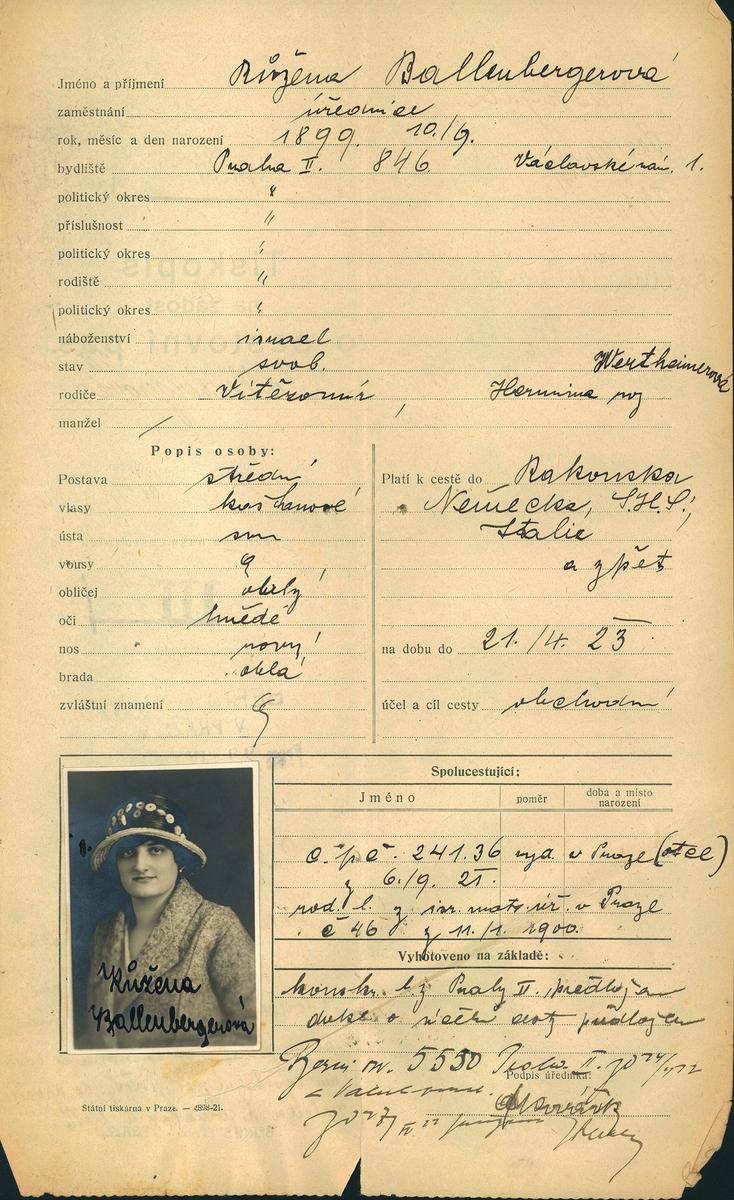 Jméno a příjmení Růžena Ballenbergerová
zaměstnání úřednice
rok, měsíc a den narození 1899. 10./9.
bydliště Praha II. 846 Václavské nám. 1.
politický okres "
příslušnost "
politický okres "
rodiště "
politický okres "
náboženství israel
stav svob.
rodiče Vítězomír, Hermina roz Wertheimerová
manžel /
Popis osoby:
Postava střední
vlasy kaštanové
ústa
vousy
obličej oblý
oči hnědé
nos rovný
brada oblá
zvláštní znamení
Platí k cestě do Rakouska
Německa, S.H.S.,
Italie
a zpět
na dobu do 21./4. 23
účel a cíl cesty obchodní
Spolucestující:
Jméno poměr doba a místo narození
č. p. č. 241.36 vyd. v Praze (otec)
z 6./9. 21.
rod. l. z isr. mat. úř. v Praze
č 46 z 11./1. 1900.
Vyhotoveno na základě:
konskr. l. z Prahy II. předložen
dokl. o účelu cesty předložen
5550 II.
Podpis úředníka:
Růžena
Ballenbergerová
Státní tiskárna v Praze. — 4898-21.